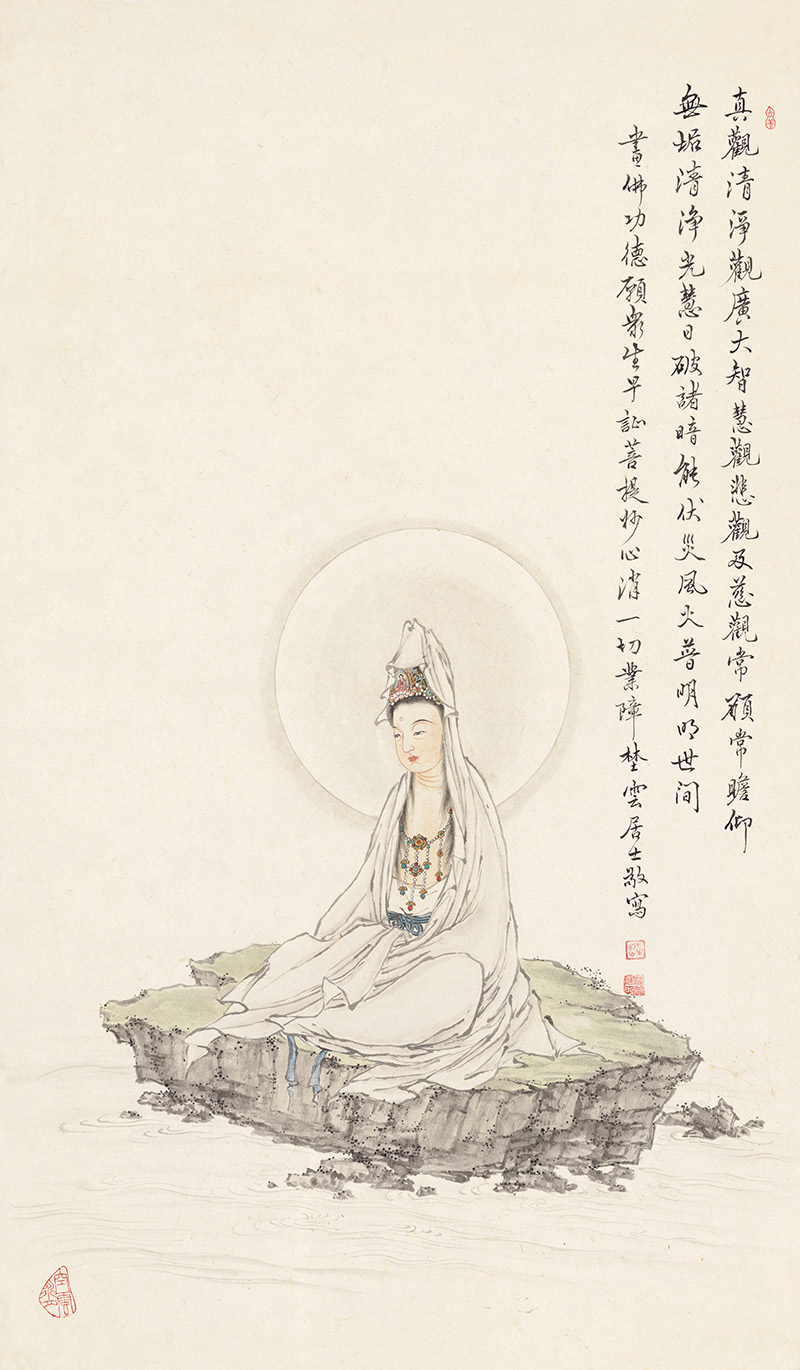 真觀清淨觀廣大智慧觀悲觀及慈觀常願常瞻仰
無垢清淨光慧日破諸暗能伏災風火普明照世间
畫佛功德願衆生早証菩提妙心消一切業障埜雲居士敬寫